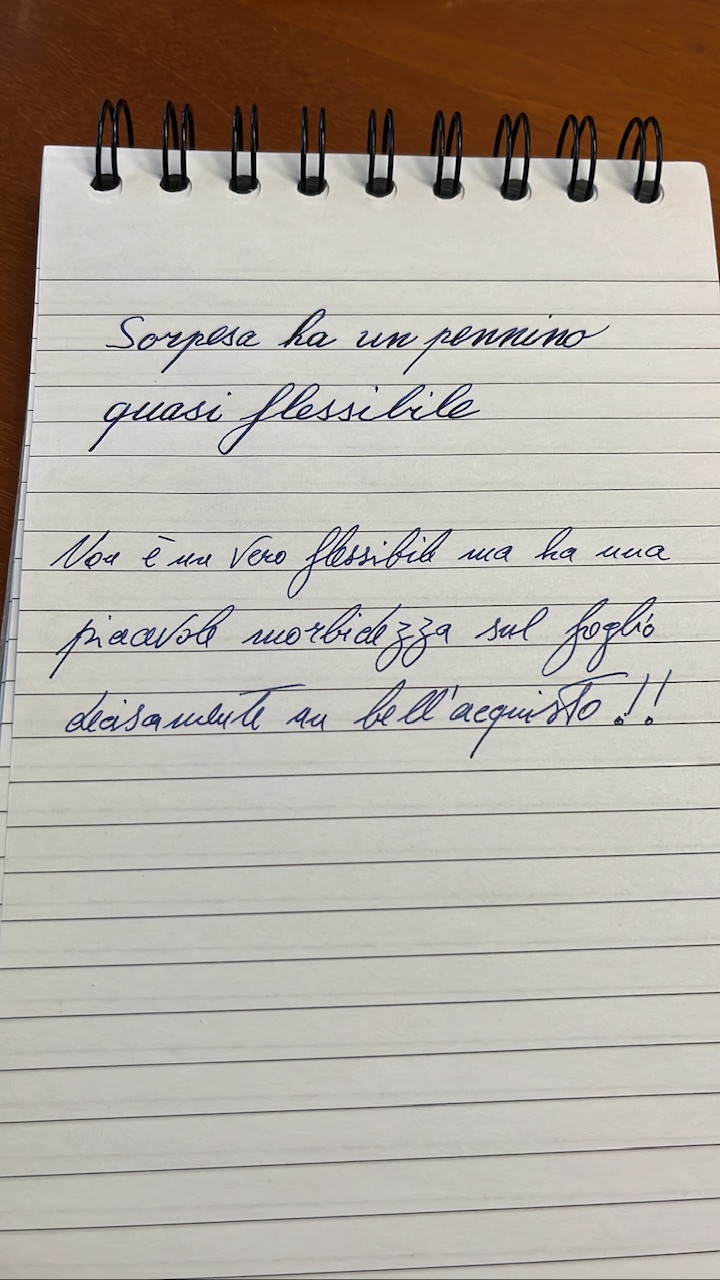 Sorpesa ha un pennino
quasi flessibile
Non è un vero flessibile ma ha una
piacevole morbidezza sul foglio
decisamente un bell'acquisto!!